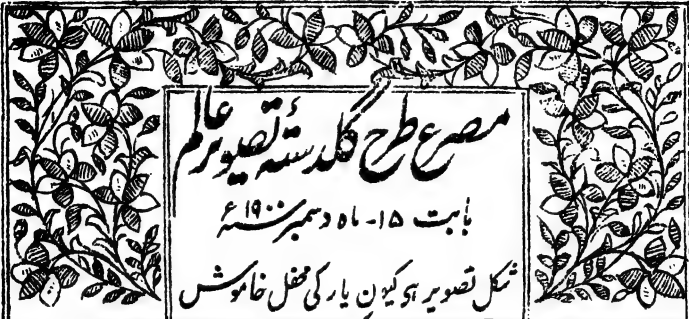 مصرع طرح گلدستۂ تصویر عالم
بابت ۱۵- ماہ دسمبر ۱۹۰۰؁ء
شکل تصویر ہی کیون یار کی محفل خاموش